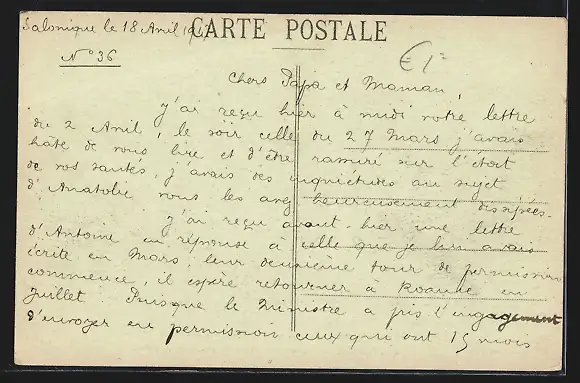 Salonique le 18 Avril 1917
CARTE POSTALE
N° 36
€1-
Chers Papa et Maman,
J'ai reçu hier à midi votre lettre
du 2 Avril, le soir celle du 27 Mars j'avais
hâte de vous lire et d'être rassuré sur l'état
de vos santés, j'avais des inquiétudes au sujet
d'Anatolie vous les avez heureusement dissipées.
J'ai reçu avant-hier une lettre
d'Antoine en réponse à celle que je lui avais
écrite en Mars, leur deuxième tour de permission
commence, il espère retourner à Roanne en
Juillet Puisque le Ministre a pris l'engagement
d'envoyer en permission ceux qui ont 15 mois